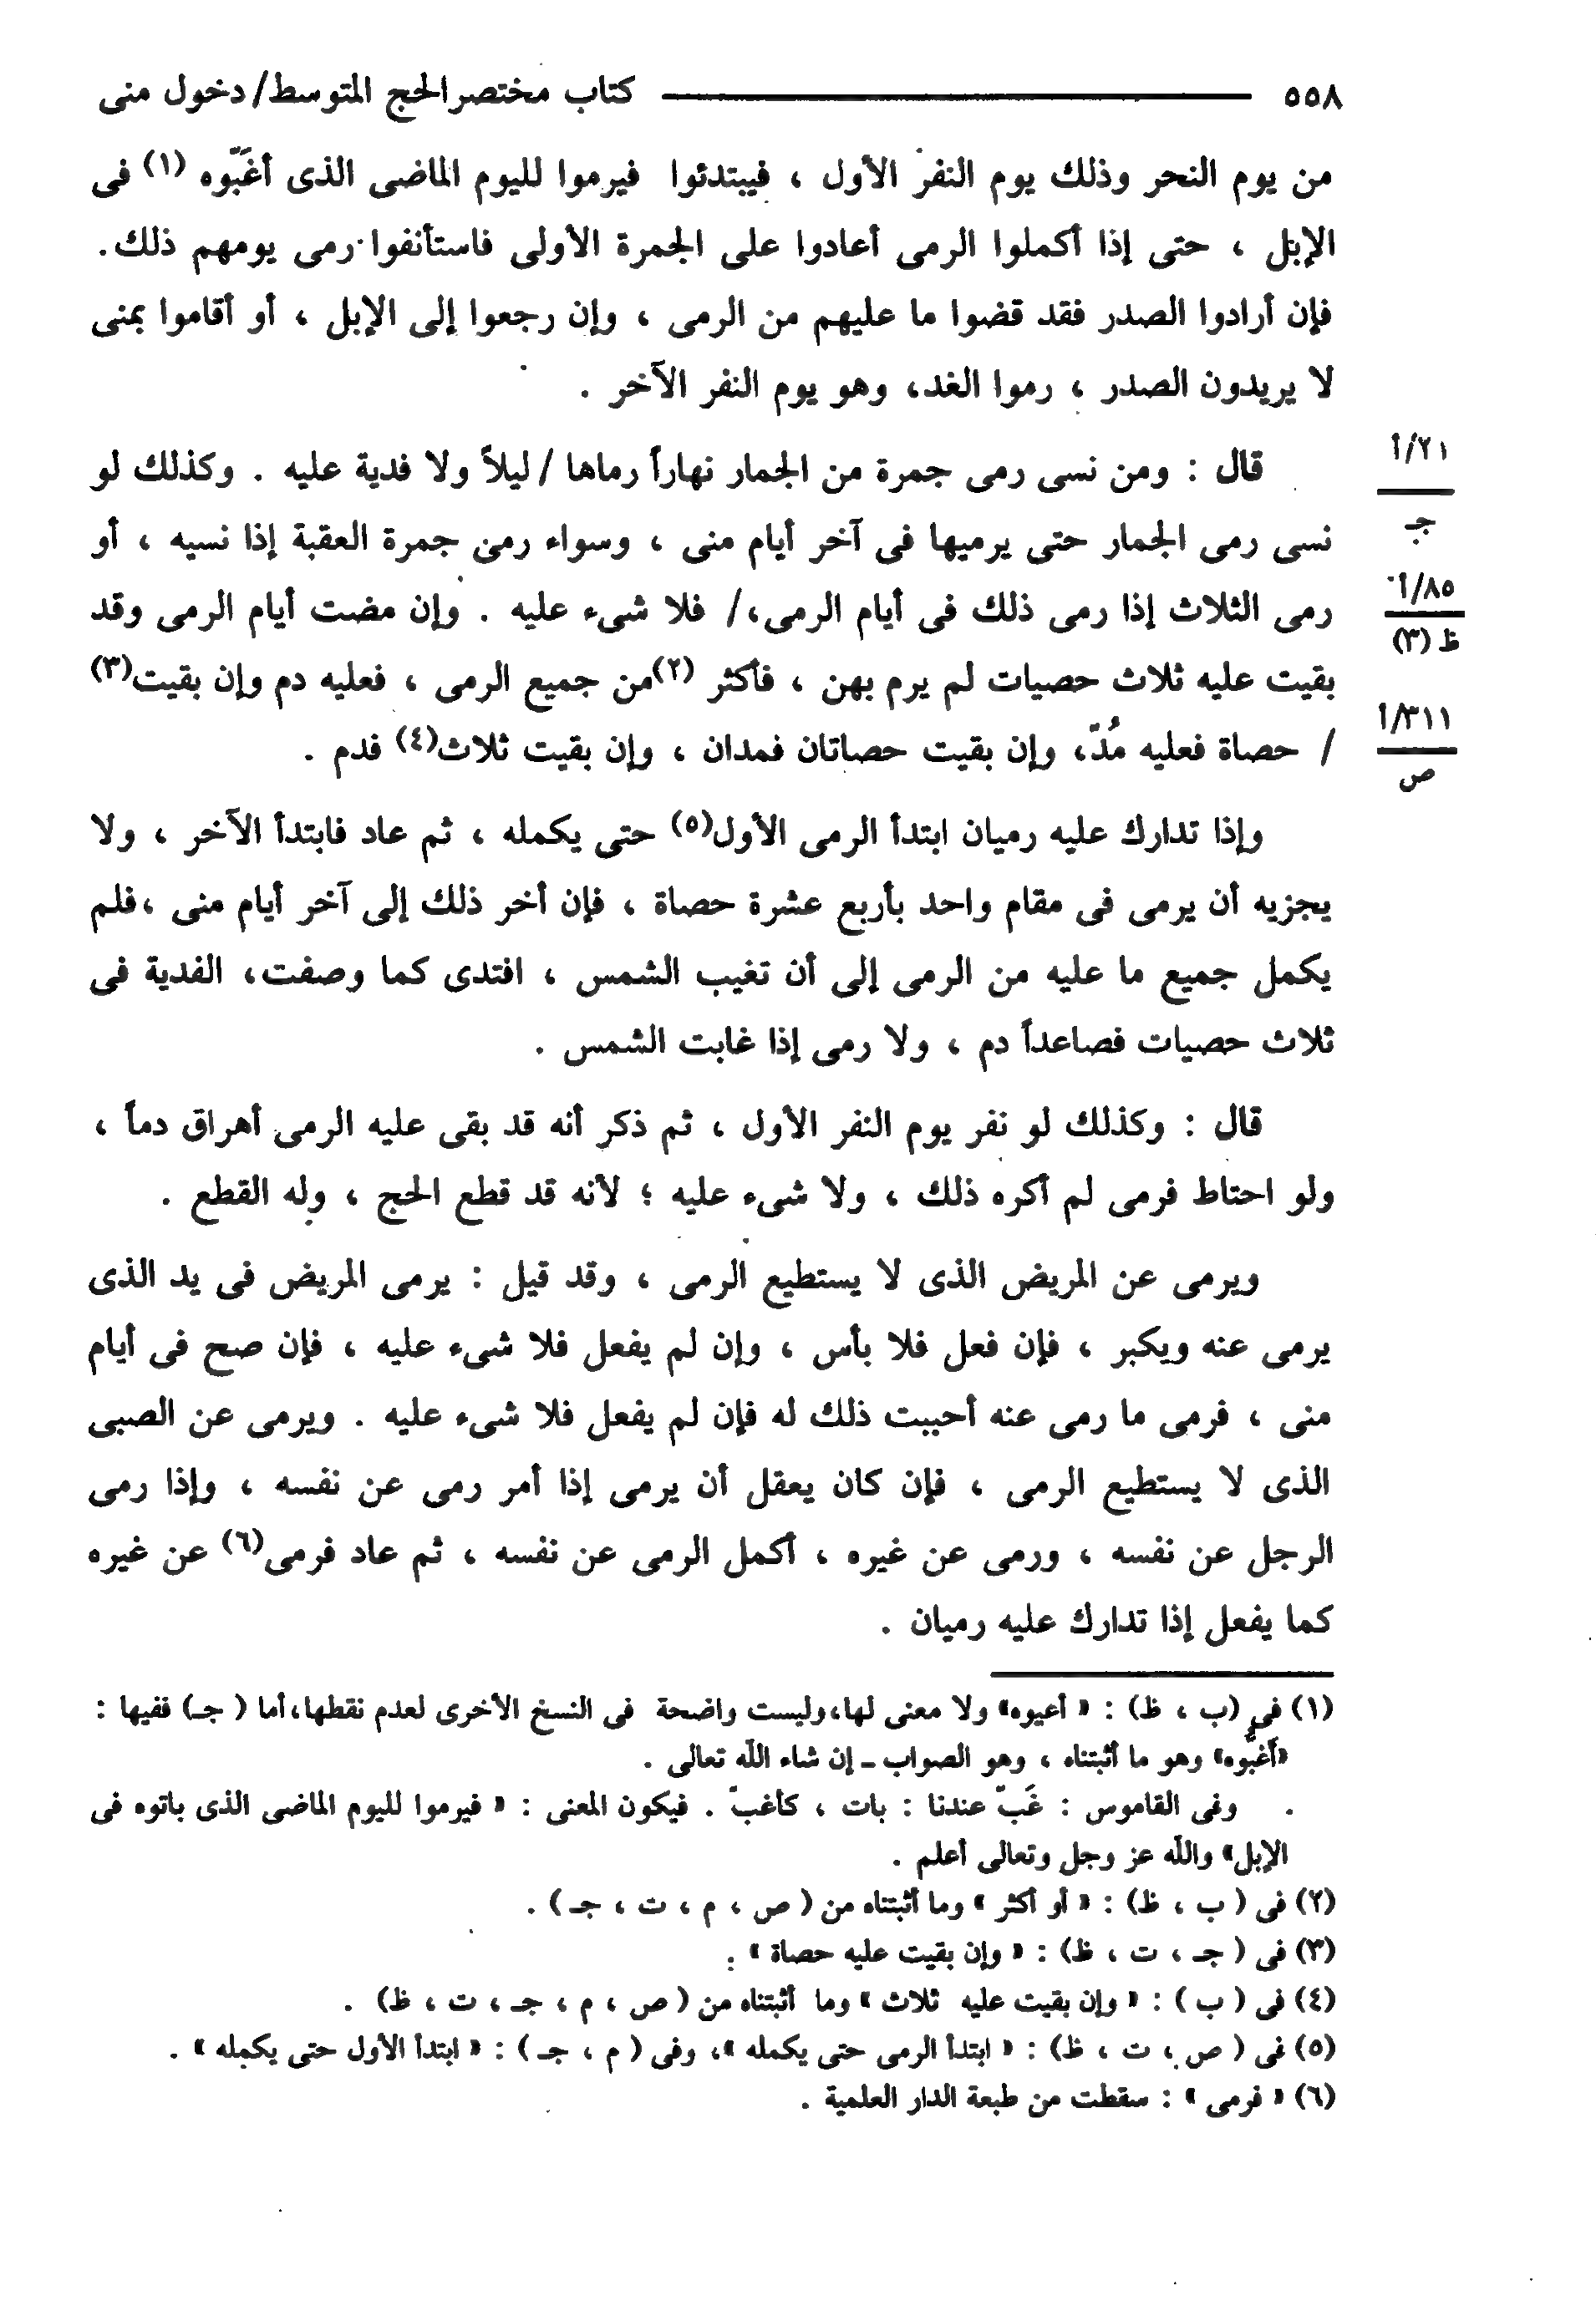 ٥٥٨ كتاب مختصر الحج المتوسط/ دخول منى
من يوم النحر وذلك يوم النفر الأول ، فيبتدئوا فيرموا لليوم الماضى الذى أغَبّوه (١) فى
الإبل ، حتى إذا أكملوا الرمى أعادوا على الجمرة الأولى فاستأنفوا رمى يومهم ذلك.
فإن أرادوا الصدر فقد قضوا ما عليهم من الرمى ، وإن رجعوا إلى الإبل ، أو أقاموا بمنى
لا يريدون الصدر ، رموا الغد، وهو يوم النفر الآخر .
قال : ومن نسى رمى جمرة من الجمار نهاراً رماها / ليلاً ولا فدية عليه . وكذلك لو
٢١/أ
نسى رمى الجمار حتى يرميها فى آخر أيام منى ، وسواء رمى جمرة العقبة إذا نسيه ، أو
جـ
رمى الثلاث إذا رمى ذلك فى أيام الرمى،/ فلا شىء عليه . وإن مضت أيام الرمى وقد
٨٥/أ
ظ (٣)
بقيت عليه ثلاث حصيات لم يرم بهن ، فأكثر (٢) من جميع الرمى ، فعليه دم وإن بقيت(٣)
٣١١/أ
/ حصاة فعليه مُدّ، وإن بقيت حصاتان فمدان ، وإن بقيت ثلاث(٤) فدم .
ص
وإذا تدارك عليه رميان ابتدأ الرمى الأول(٥) حتى يكمله ، ثم عاد فابتدأ الآخر ، ولا
يجزيه أن يرمى فى مقام واحد بأربع عشرة حصاة ، فإن أخر ذلك إلى آخر أيام منى ،فلم
يكمل جميع ما عليه من الرمى إلى أن تغيب الشمس ، افتدى كما وصفت، الفدية فى
ثلاث حصيات فصاعداً دم ، ولا رمى إذا غابت الشمس .
قال : وكذلك لو نفر يوم النفر الأول ، ثم ذكر أنه قد بقى عليه الرمى أهراق دماً ،
ولو احتاط فرمى لم أكره ذلك ، ولا شىء عليه ؛ لأنه قد قطع الحج ، وله القطع .
ويرمى عن المريض الذى لا يستطيع الرمى ، وقد قيل : يرمى المريض فى يد الذى
يرمى عنه ويكبر ، فإن فعل فلا بأس ، وإن لم يفعل فلا شىء عليه ، فإن صح فى أيام
منى ، فرمى ما رمى عنه أحببت ذلك له فإن لم يفعل فلا شىء عليه . ويرمى عن الصبى
الذى لا يستطيع الرمى ، فإن كان يعقل أن يرمى إذا أمر رمى عن نفسه ، وإذا رمى
الرجل عن نفسه ، ورمى عن غيره ، أكمل الرمى عن نفسه ، ثم عاد فرمى(٦) عن غيره
كما يفعل إذا تدارك عليه رميان .
(١) فى (ب ، ظ) : « أعيوه» ولا معنى لها،وليست واضحة فى النسخ الأخرى لعدم نقطها،أما ( جـ) ففيها :
«أَغَبُّوه» وهو ما أثبتناه ، وهو الصواب ـ إن شاء الله تعالى .
وفى القاموس : غَبّ عندنا : بات ، كأغبّ . فيكون المعنى : « فيرموا لليوم الماضى الذى باتوه فى
الإبل» والله عز وجل وتعالى أعلم .
(٢) فى ( ب ، ظ) : « أو أكثر » وما أثبتناه من ( ص ، م ، ت ، جـ ) .
(٣) فى ( جـ ، ت ، ظ) : « وإن بقيت عليه حصاة » .
(٤) فى ( ب ) : « وإن بقيت عليه ثلاث » وما أثبتناه من ( ص ، م ، جـ ، ت ، ظ) .
(٥) فى ( ص ، ت ، ظ) : « ابتدأ الرمى حتى يكمله »، وفى ( م ، جـ ) : « ابتدأ الأول حتى يكمله » .
(٦) « فرمى » : سقطت من طبعة الدار العلمية .